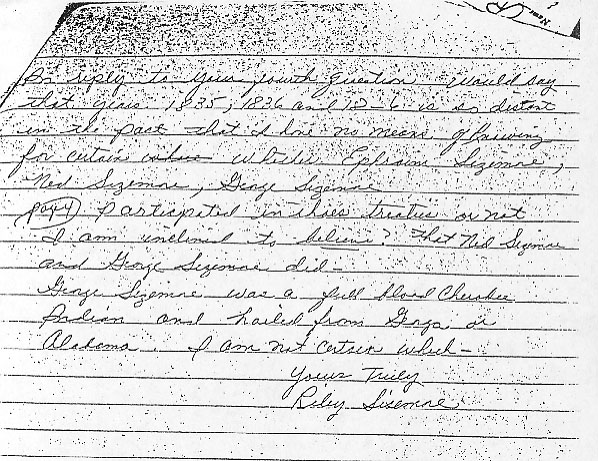 In reply to your fourth question would say
that years 1835, 1836 and 18-6 is so distant
in the past that I have no means of knowing
for certain whether Ephraim Sizemore,
Ned Sizemore, George Sizemore
participated in those treaties or not
I am inclined to believe? that Ned Sizemore
and George Sizemore did-
George Sizemore was a full blood Cherokee
Indian and hailed from Gorga or
Alabama. I am not certain which-
Yours Truly
Riley Sizemore